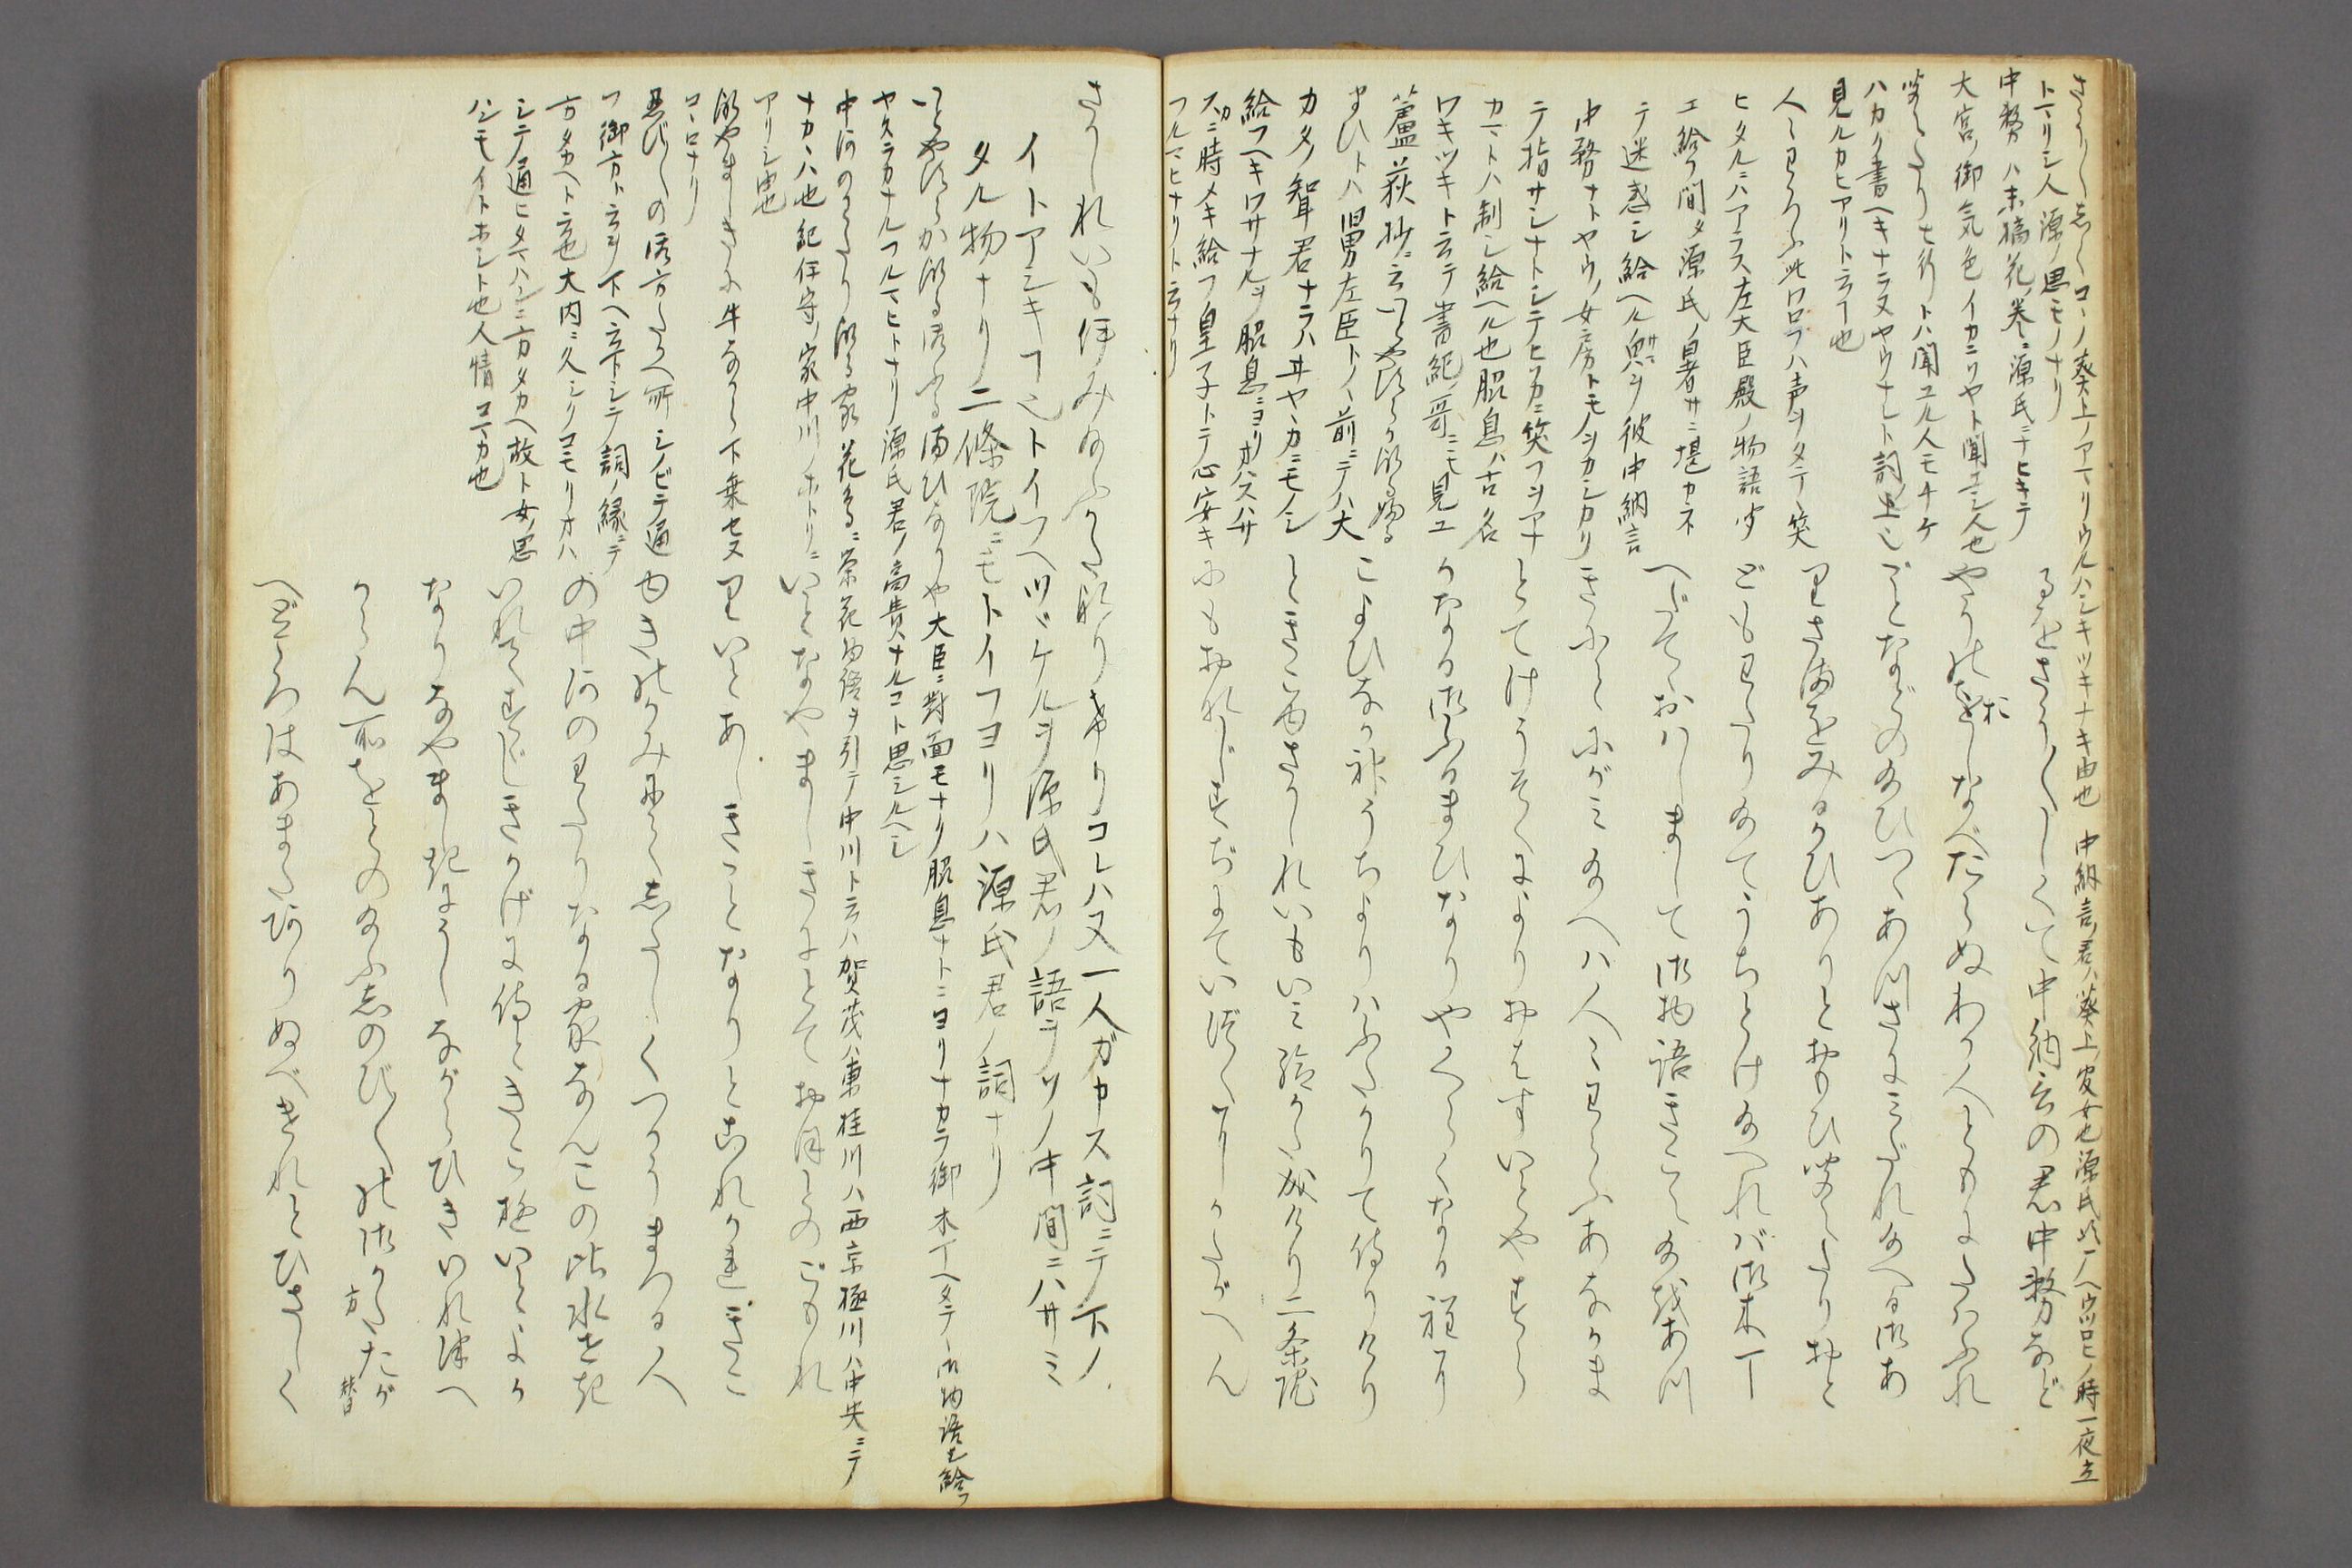 さう〱し〱コヽノ葵上ノアマリウルハシキツキナキ由也 中納言ノ君ハ葵上ノ官女也源氏須ノヘウツロヒノ時一夜立
トマリシ人源ノ思モノナリ
中務ハ末摘花ノ巻ニ源氏ニナヒキテ
大宮ノ御気色イカニヤト聞エシ人也
ハカク書ヘキナラヌヤウナレト詞上ニ
見ルカヒアリト云フ也
人〱わらふ此ワロフハ声ヲタテヽ笑
ヒタルニハアラス左大臣殿ノ物語
エ給フ間タ源氏ノ暑サニ堪カネ
テ迷惑シ給ヘル㒵ヲ彼中納言
中務ナトヤウノ女房トモノヲカシカリ
テ指サシナトシテヒソカニ笑フヲアナ
カマトハ制シ給ヘル也脇息ハ古名
ワキツキト云テ書紀ノ哥ニモ見エ
蘆荻抄ニ云いとやすらか成御ふる
まひトハ舅左臣トノヽ前ニテハ大
カタノ聟君ナラハヰヤヽカニモノシ
給フヘキワサナルヲ脇息ニヨリオハスハサ
スカニ時メキ給フ皇子トテ心安キ
フルマヒナリト云ナリ
るをさう〱しくて中納言の君中務など
やうのおしなべたらぬわか人どもにたはふれ
ごとなどのたまひつゝあつさにみだれ給へる御あ
りさまをみるかひありとおもひ聞えたりおとゞ
どもわたり給てうちとけ給へれバ御木丁
へだてゝおハしまして御物語きこえ給を あつ
きにとにがミ給へハ人〱わらふあなかま
とてけうそくによりおはすいとやすら
かなる御ふるまひなりやくらくなる程に
こよひなか神うちよりハふたかりて侍りけり
ときこゆさかしれいもいミ給かた成けり二条院
にもおなじすぢにていづくにかたがへん
さかしれいも伊み給ふかた成りけりコレハ又一人ガカス詞ニテ下ノ
イトアシキコトヽイフヘツヾケルヲ源氏君ノ語ヲソノ中間ニハサミ
タル物ナリ二條院ニモトイフヨリハ源氏君ノ詞ナリ
いとやすらか成る御ふるまひなりや大臣ニ對面モナリ脇息ナトニヨリナカラ御木丁ヘタテヽ御物語を給フ
ヤスラカナルフルマヒトナリ源氏君ノ高貴ナルコト思ミルヘシ
中河のわたり成る家 花鳥ニ栄花物語ヲ引テ中川ト云ハ賀茂ハ東桂川ハ西京極川ハ中央ニテ
ナカヽハ也紀伊守ノ家中川ノホトリニ
アリシ由也
なやましきに牛ながら下乗セヌ
コヽロナリ
忍び〱の御方たかへ所 シノビテ通
フ御方ト云ヲ下ヘ云下シテ詞ノ縁ニテ
方タカヘト云也大内ニ久シクコモリオハ
シテ通ヒタマハンニ方タカヘ故ト女ノ思
ハンモイトホシト也人情コマカ也
いとなやましきにとておほとのごもれ
りいとあしきことなりとこれかれきこ
ゆきのかみにてしたしくつかうまつる人
の中河のわたりなる家なんこの比水せき
いれてすゞしきかげに侍ときこゆいとよか
なりなやましきにうしながらひきいれつべ
からん所をとのたまふ忍のび〱の御かたたが
へどころはあまた侍りぬべけれどひさしく